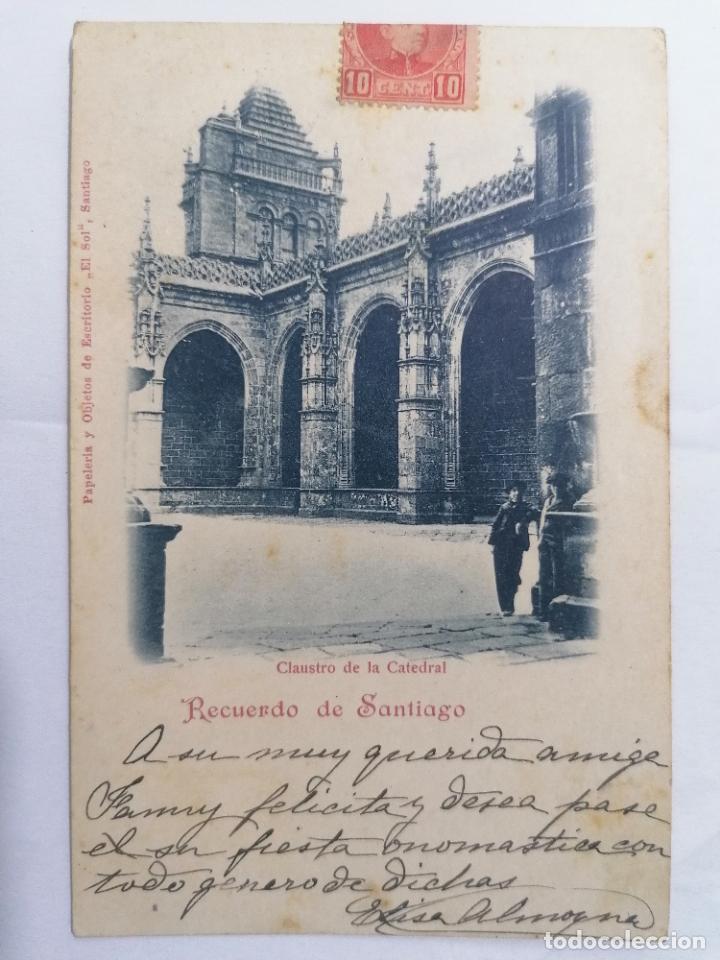 10 CENT 10
Papeleria y Objetos de Escritorio „El Sol“, Santiago
Claustro de la Catedral
Recuerdo de Santiago
A su muy querida amiga
Fanny felicita y desea pase
el su fiesta onomastica con
todo genero de dichas
Elisa Almoyna
todocoleccion.net